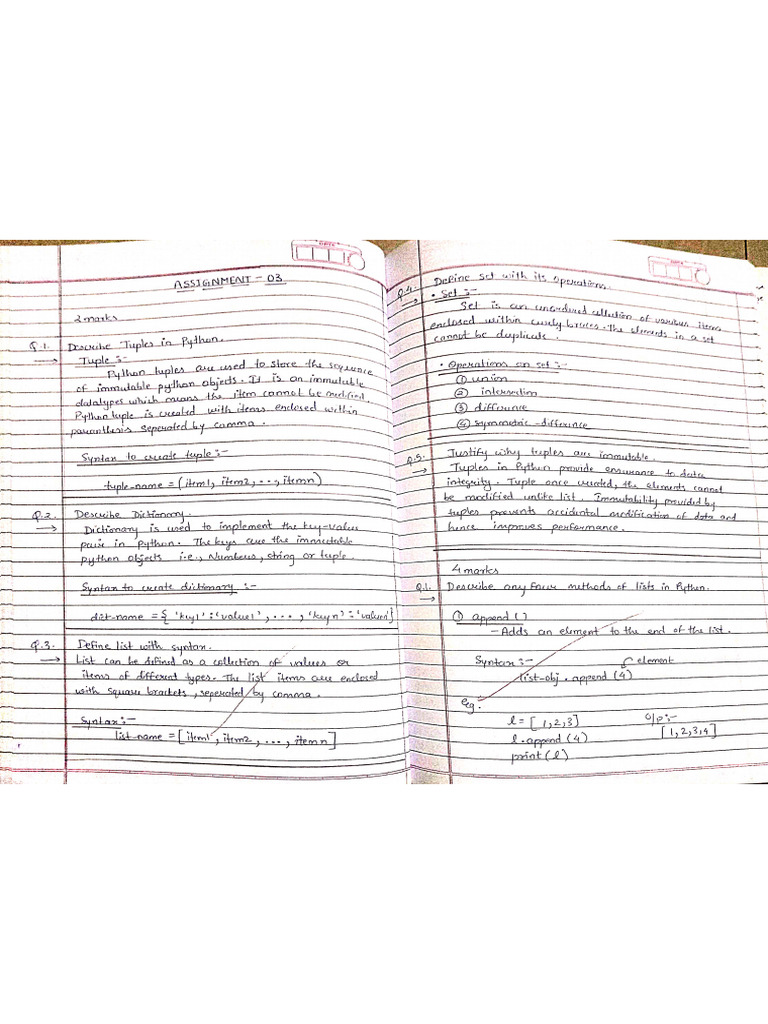 ASSIGNMENT - 03
2 marks
Q.1. Describe Tuples in Python.
→ Tuple :-
Python tuples are used to store the sequence
of immutable python objects. It is an immutable
datatypes which means the item cannot be modified.
Python tuple is created with items enclosed within
paranthesis seperated by comma.
Syntax to create tuple :-
tuple-name = (item1, item2, ..., itemn)
Q.2. Describe Dictionary.
→ Dictionary is used to implement the key-value
pair in python. The keys are the immutable
python objects i.e., Numbers, string or tuple.
Syntax to create dictionary :-
dict-name = { 'key1' : 'value1', ..., 'keyn' : 'valuen'}
Q.3. Define list with syntax.
→ List can be defined as a collection of values or
items of different types. The list items are enclosed
with square brackets, seperated by comma.
Syntax :-
list-name = [item1, item2, ..., itemn]
Q.4. Define set with its operations.
→ • Set :-
Set is an unordered collection of various items
enclosed within curly braces. The elements in a set
cannot be duplicate.
• Operations on set :-
① union
② intersection
③ difference
④ symmetric-difference
Q.5. Justify why tuples are immutable.
→ Tuples in Python provide ensurance to data
integrity. Tuple once created, the elements cannot
be modified unlike list. Immutability provided by
tuples prevents accidental modification of data and
hence improves performance.
4 marks
Q.1. Describe any four methods of lists in Python.
→
① append ()
- Adds an element to the end of the list.
Syntax :- element
list-obj . append (4)
eg:
l = [1,2,3] o/p :-
l . append (4) [1,2,3,4]
print (l)